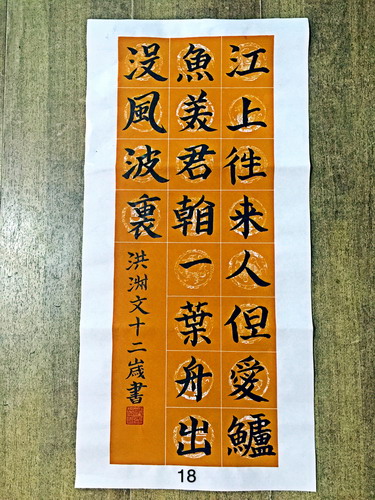 江上徃来人但愛鱸
魚美君看一葉舟出
没風波裏
洪渊文十二歲書
18